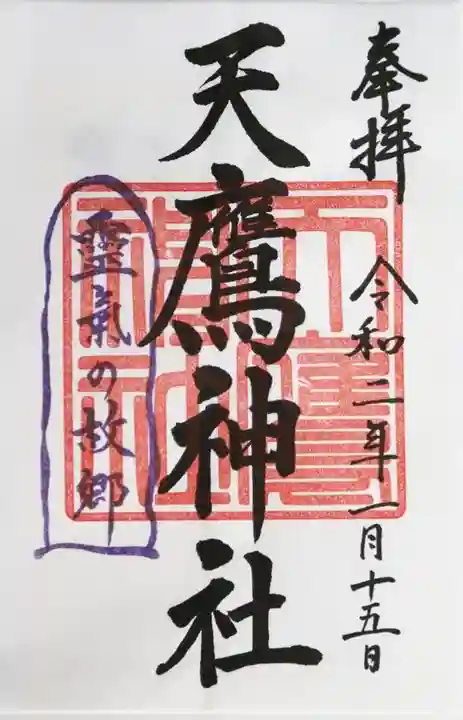 奉拝
令和二年一月十五日
天鷹神社
靈氣の故郷